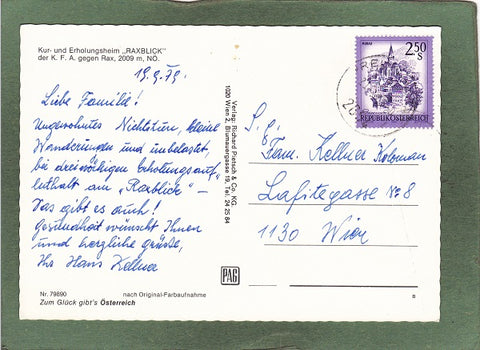 Kur- und Erholungsheim „RAXBLICK"
der K. F. A. gegen Rax, 2009 m, NÖ.
19.9.79.
Liebe Familie!
Ungewohntes Nichtstun, kleine
Wanderungen und unbelastet,
bei dreiwöchigem Erholungsauf-
enthalt am „Raxblick" –
Das gibt es auch!
Gesundheit wünscht Ihnen
und herzliche Grüsse,
Ihr Hans Kellner
Nr. 79890
nach Original-Farbaufnahme
Zum Glück gibt's Österreich
Verlag: Richard Pietsch & Co. KG.
1020 Wien 2, Blumauergasse 19, Tel. 24 25 84
PAG
MURAU
2.50
S
REPUBLIK ÖSTERREICH
S. g.
Fam. Kellner
Lafitegasse No 8
1130 Wien